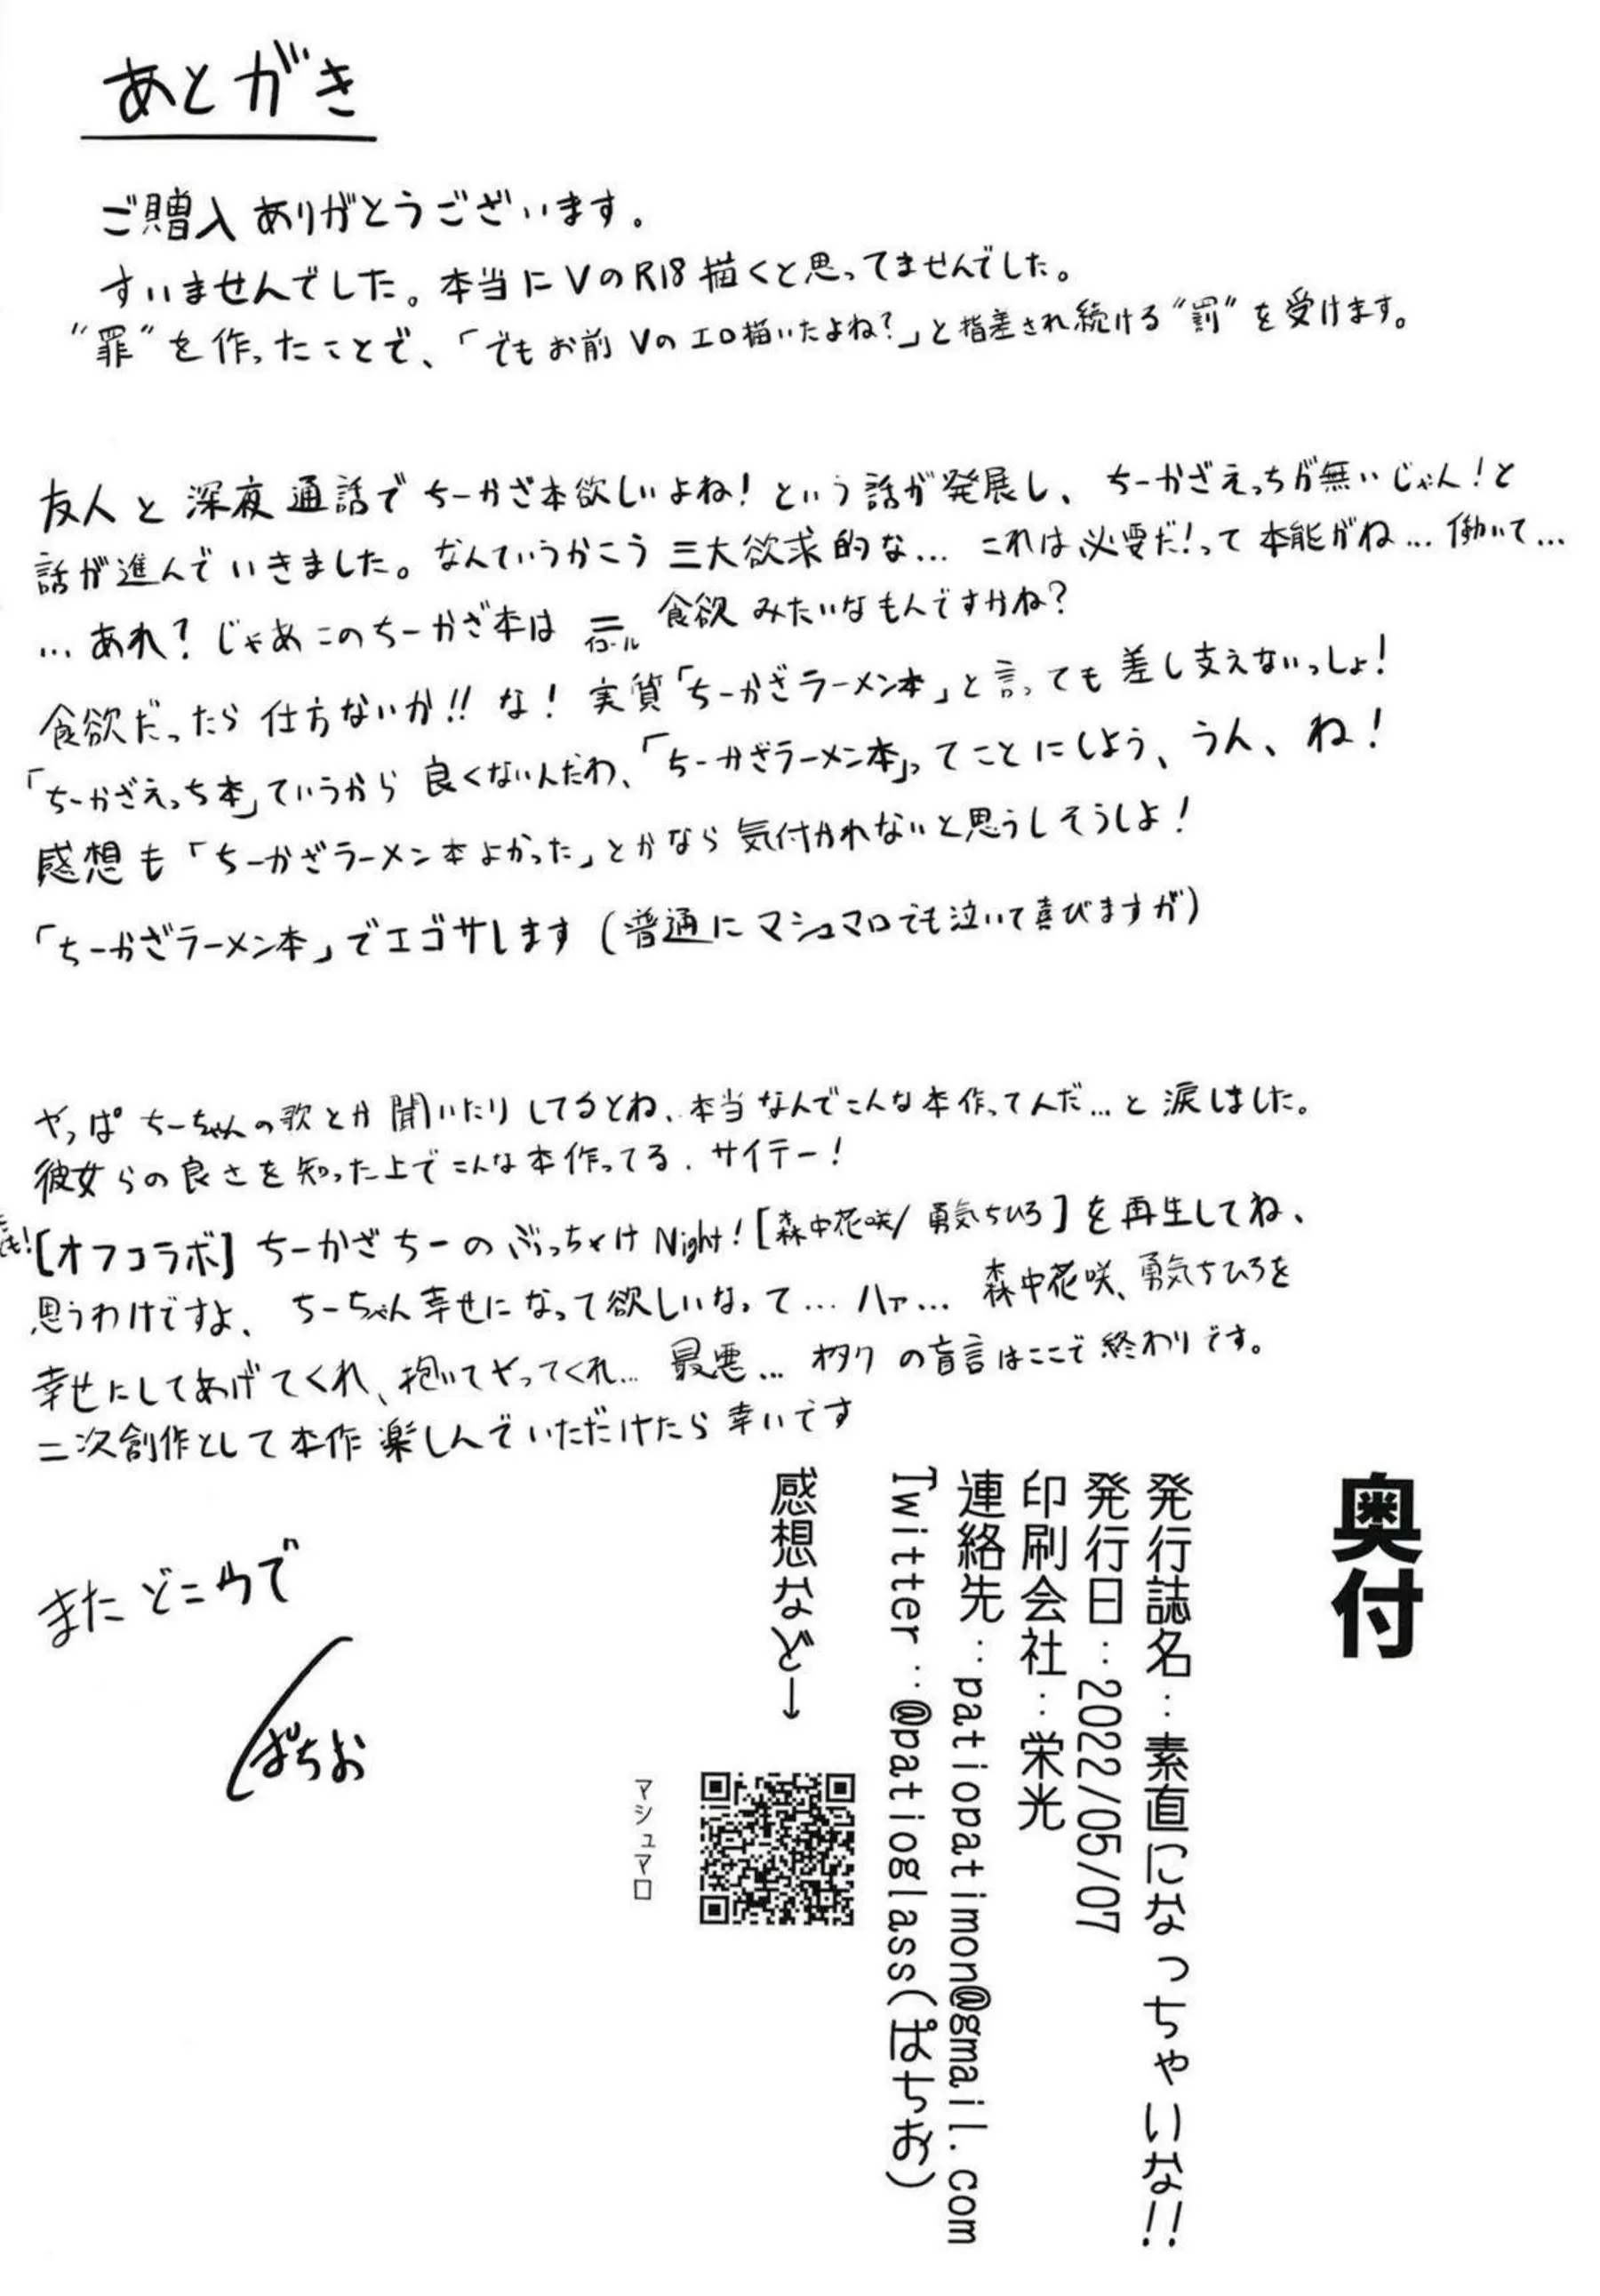 あとがき
ご贈入ありがとうございます。
すいませんでした。本当にVのR18描くと思ってませんでした。
"罪"を作ったことで、「でもお前Vのエロ描いたよね?」と指差され続ける"罰"を受けます。
友人と深夜通話でちーかざ本欲しいよね!という話が発展し、ちーかざえっちが無いじゃん!と
話が進んでいきました。なんていうかこう三大欲求的な…これは必要だ!って本能がね…働いて…
…あれ?じゃあこのちーかざ本は=イコール食欲みたいなもんですかね?
食欲だったら仕方ないか!!な!実質「ちーかざラーメン本」と言っても差し支えないっしょ!
「ちーかざえっち本」ていうから良くないんだわ、「ちーかざラーメン本」ってことにしよう、うん、ね!
感想も「ちーかざラーメン本よかった」とかなら気付かれないと思うしそうしよ!
「ちーかざラーメン本」でエゴサします(普通にマシュマロでも泣いて喜びますが)
やっぱちーちゃんの歌とか聞いたりしてるとね、本当なんでこんな本作ってんだ…と涙しました。
彼女らの良さを知った上でこんな本作ってる.サイテー!
[オフコラボ]ちーかざちーのぶっちゃけNight![森中花咲/勇気ちひろ]を再生してね、
思うわけですよ、ちーちゃん幸せになって欲しいなって…ハァ…森中花咲、勇気ちひろを
幸せにしてあげてくれ、抱いてやってくれ…最悪…オタクの盲言はここで終わりです。
二次創作として本作楽しんでいただけたら幸いです
またどこかで
ぱちお
奥付
発行誌名:素直になっちゃいな!!
発行日:2022/05/07
印刷会社:栄光
連絡先:patiopatimon@gmail.com
Twitter:@patioglass(ぱちお)
感想など→
マシュマロ